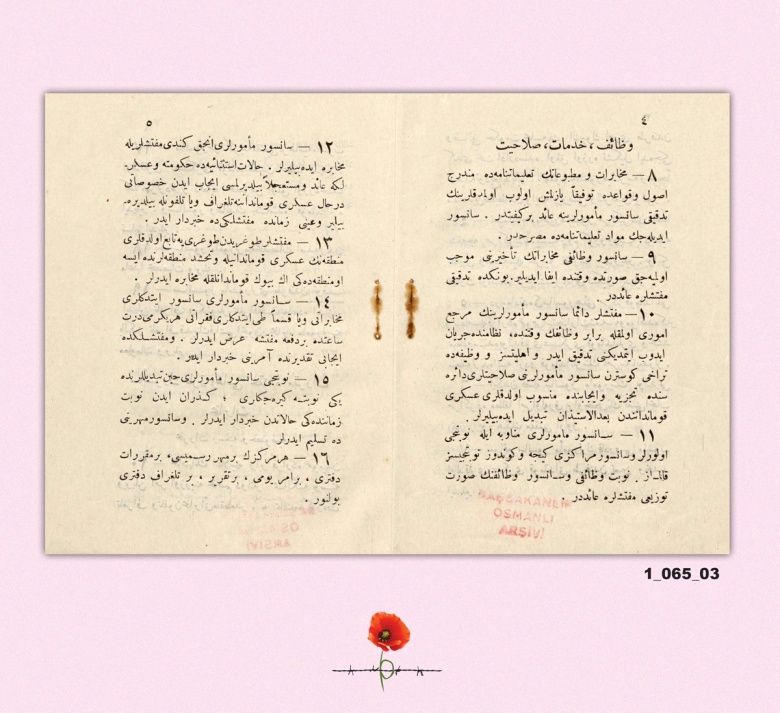 ٤
وظائف، خدمات، صلاحيت
٨ — مخابرات و مطبوعاتك تعليماتنامه‌ده مندرج
اصول وقواعده توفيقاً يازلمش اولوب اولمدقلرينك
تدقيقى سانسور مأمورلرينه عائد بر كيفيتدر . سانسور
ايديله‌جك مواد تعليماتنامه‌ده مصرحدر .
٩ — سانسور وظائفى مخابراتك تأخيرينى موجب
اوليه‌جق صورتده وقتنده ايفا ايديلير. بونكده تدقيقى
مفتشلره عائددر .
١٠ — مفتشلر دائما سانسور مأمورلرينك مرجع
امورى اولمقله برابر وظائفك وقتنده، نظامنده جريان
ايدوب ايتمديكنى تدقيق ايدر و اهليتسز و وظيفه‌ده
تراخى كوسترن سانسور مأمورلرينى صلاحيتلرى دائره
سنده تجزيه وايجابنده منسوب اولدقلرى عسكرى
قوماندانندن بعدالاستئذان تبديل ايده‌بيليرلر .
١١ — سانسور مأمورلرى مناوبه ايله نوبتجى
اولورلر وسانسور مراكزى كيجه وكوندوز نوبتجيسز
قالماز . نوبت وظائفى وسانسور وظائفنك صورت
توزيعى مفتشلره عائددر .
BAŞBAKANLIK
OSMANLI
ARŞİVİ
٥
١٢ — سانسور مأمورلرى آنجق كندى مفتشلريله
مخابره ايده‌بيليرلر . حالات استثنائيه‌ده حكومته وعسكر.
لكه عائد ومستعجلاً بيلديرلمسى ايجاب ايدن خصوصاتى
درحال عسكرى قوماندانه تلغراف ويا تلفونله بيلديره.
بيلير وعينى زمانده مفتشلكى‌ده خبردار ايدر .
١٣ — مفتشلر طوغريدن طوغرى‌يه تابع اولدقلرى
منطقه‌نك عسكرى قوماندانيله وتحشد منطقه‌لرنده ايسه
اومنطقه‌ده‌كى اك بيوك قوماندانلقله مخابره ايدرلر .
١٤ — سانسور مأمورلرى سانسور ايتدكارى
مخابراتى ويا قسماً طى ايتدكارى فقراتى هريكرمى‌درت
ساعتده بردفعه مفتشه عرض ايدرلر . ومفتشلكده
ايجابى تقديرنده آمرينى خبردار ايدر .
١٥ — نوبتجى سانسور مأمورلرى حين تبديللرنده
يكى نوبته كيره‌جكارى ؛ كذران ايدن نوبت
زماننده‌كى حالاتدن خبردار ايدرلر . وسانسور مهرينى
ده تسليم ايدرلر
١٦ — هرمركزك برمهر رسميسى، برمقررات
دفترى ، برامر يومى ، برتقرير ، بر تلغراف دفترى
بولنور .
1_065_03